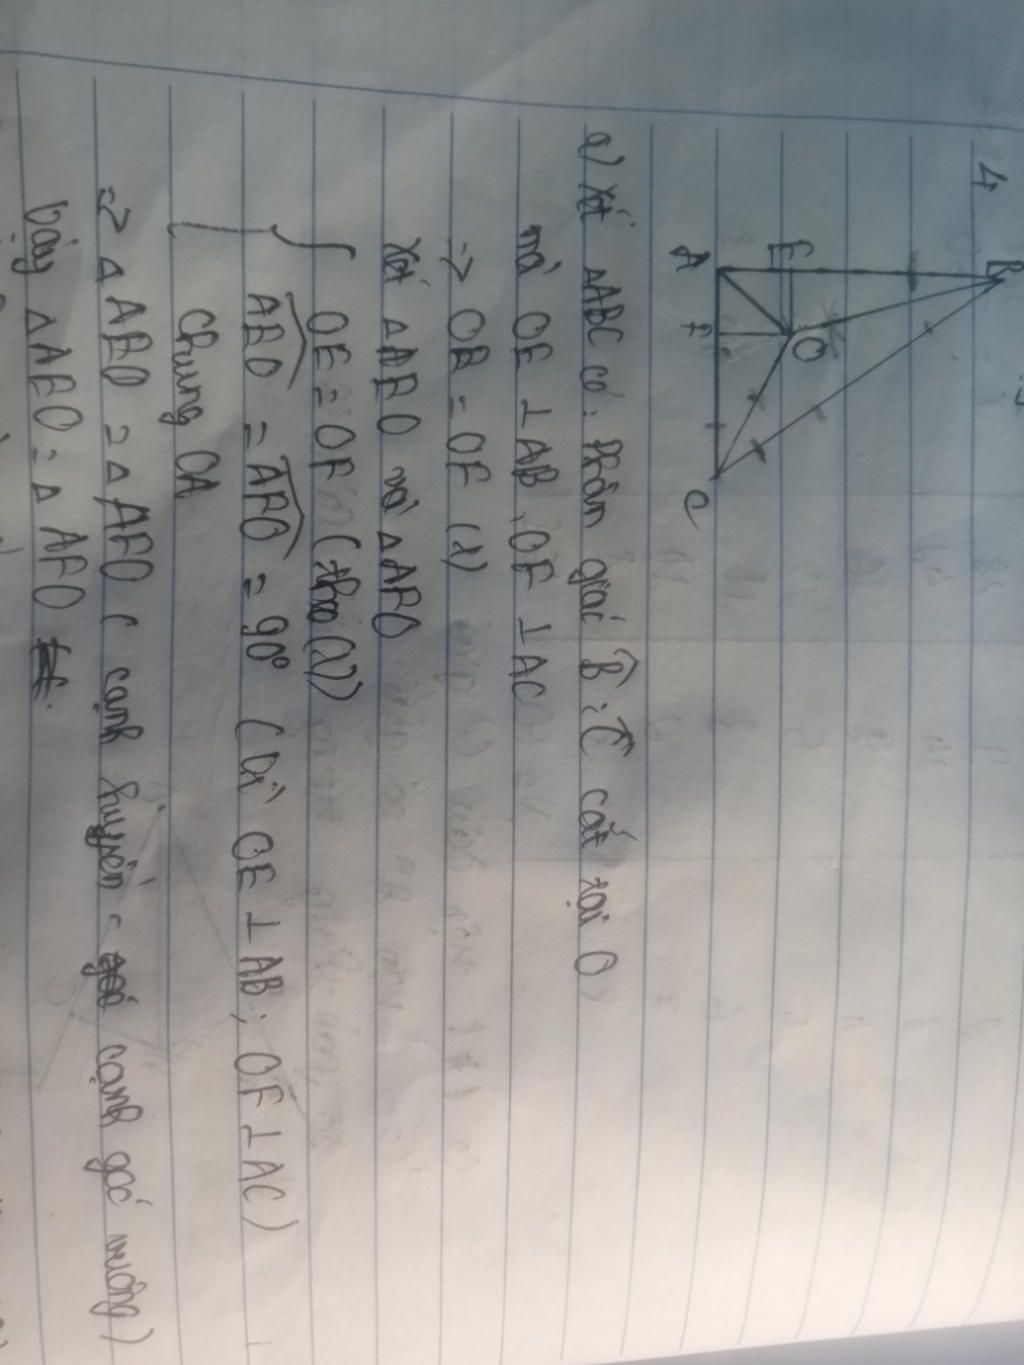 4.
B
E
O
A
F
C
a) Xét ΔABC có: Phân giác B̂; Ĉ cắt tại O
mà OE ⊥ AB, OF ⊥ AC
=> OE = OF (1)
Xét ΔAEO và ΔAFO
OE = OF (theo (1))
AEO = AFO = 90° (Vì OE ⊥ AB; OF ⊥ AC)
Chung OA
=> ΔAEO = ΔAFO ( cạnh huyền - cạnh góc vuông)
Vậy ΔAEO = ΔAFO